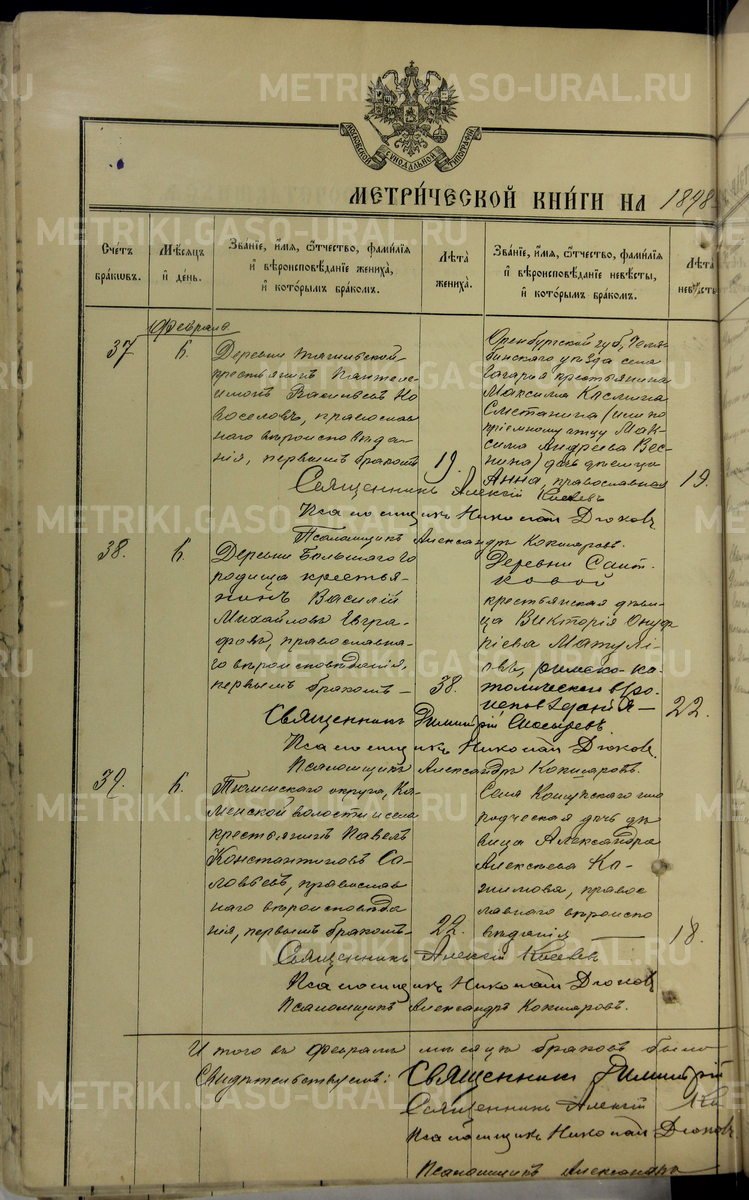 МОСКОВСКОЙ СѴНОДАЛЬНОЙ ТИПОГРАФІИ
МЕТРИ́ЧЕСКОЙ КНИ́ГИ НА 1898
Счетъ бра́кѡвъ.
Мѣ́сѧцъ и҆ де́нь.
Зва́нїе, и҆́мѧ, ѻ҆́тчество, фами́лїѧ и҆ вѣроисповѣ́данїе жениха̀, и҆ кото́рымъ бра́комъ.
Лѣта̀ жениха̀.
Зва́нїе, и҆́мѧ, ѻ҆́тчество, фами́лїѧ и҆ вѣроисповѣ́данїе невѣ́сты, и҆ кото́рымъ бра́комъ.
Лѣта̀ невѣ́сты
Февраля
37
6.
Деревни Тягильской
крестьянинъ Пантеле-
имонъ Васильевъ Но
воселовъ, православ
наго вѣроисповѣда-
нія, первымъ бракомъ
19.
Оренбургской губ, Челя-
бинскаго уѣзда села
крестьянина
Максима
Сметанина (или по
пріемному отцу Мак-
сима Андреева Вес-
нина) дочь дѣвица
Анна, православная
19.
Священникъ Алексій
Псаломщикъ Николай Дюковъ
Псаломщикъ Александръ Кокшаровъ.
38.
6.
Деревни Большаго Го
родища крестья-
нинъ Василій
Михайловъ Евгра-
фовъ, православна-
го вѣроисповѣданія,
первымъ бракомъ —
38.
Деревни
крестьянская дѣви-
ца Викторія Онуф
ріева Матулі
римско-ка-
толическаго вѣро-
исповѣданія —
22.
Священникъ Димитрій
Псаломщикъ Николай Дюковъ.
Псаломщикъ Александръ Кокшаровъ.
39.
6.
Тюменскаго округа, Ка-
менской волости и села
крестьянинъ Павелъ
Константиновъ Со-
ловьевъ, православ
наго вѣроисповѣда
нія, первымъ бракомъ —
22.
Села Кошукскаго ино
родческая дочь дѣ
вица Александра
Алексѣева Ка-
зимова, правос
лавнаго вѣроиспо
вѣданія —
18.
Священникъ Алексій
Псаломщикъ Николай Дюковъ
Псаломщикъ Александръ Кокшаровъ.
Итого въ Февралѣ мѣсяцѣ браковъ было
Свидѣтельствуемъ: Священникъ Димитрій
Священникъ Алексій
Псаломщикъ Николай Дюковъ
Псаломщикъ Александръ
METRIKI.GASO-URAL.RU